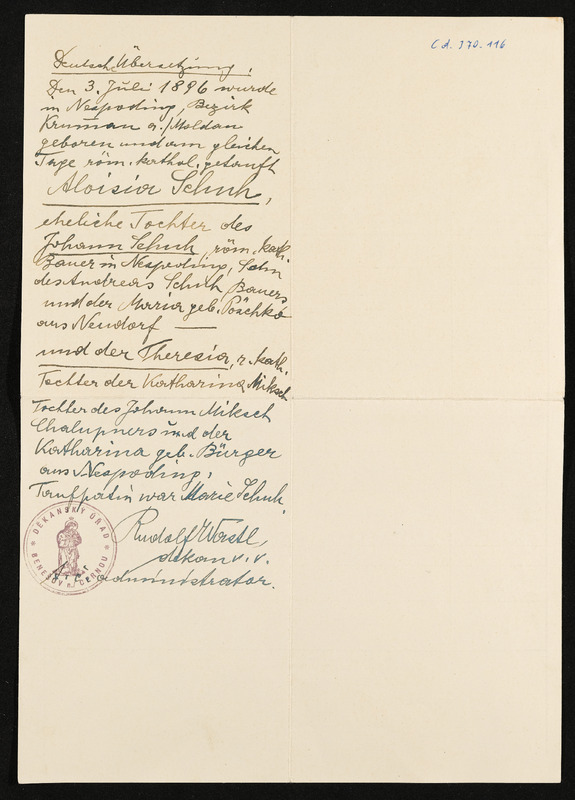 C.d. 370-116
Deutsche Übersetzung.
Den 3. Juli 1896 wurde
in Nespoding, Bezirk
Krumau a./Moldau
geboren und am gleichen
Tage röm. kathol. getauft
Aloisia Schuh,
eheliche Tochter des
Johann Schuh, röm. kath.
Bauer in Nespoding, Sohn
des Andreas Schuh, Bauers
und der Maria geb. Pöschko
aus Neudorf —
und der Theresia, r. kath.
Tochter der Katharina Miksch
Tochter des Johann Miksch
Chalupners und der
Katharina geb. Bürger
aus Nespoding.
Taufpatin war Marie Schuh.
Rudolf
dekan v. v.
administrator.
DĚKANSKÝ ÚŘAD
BENEŠOV n. ČERNOU